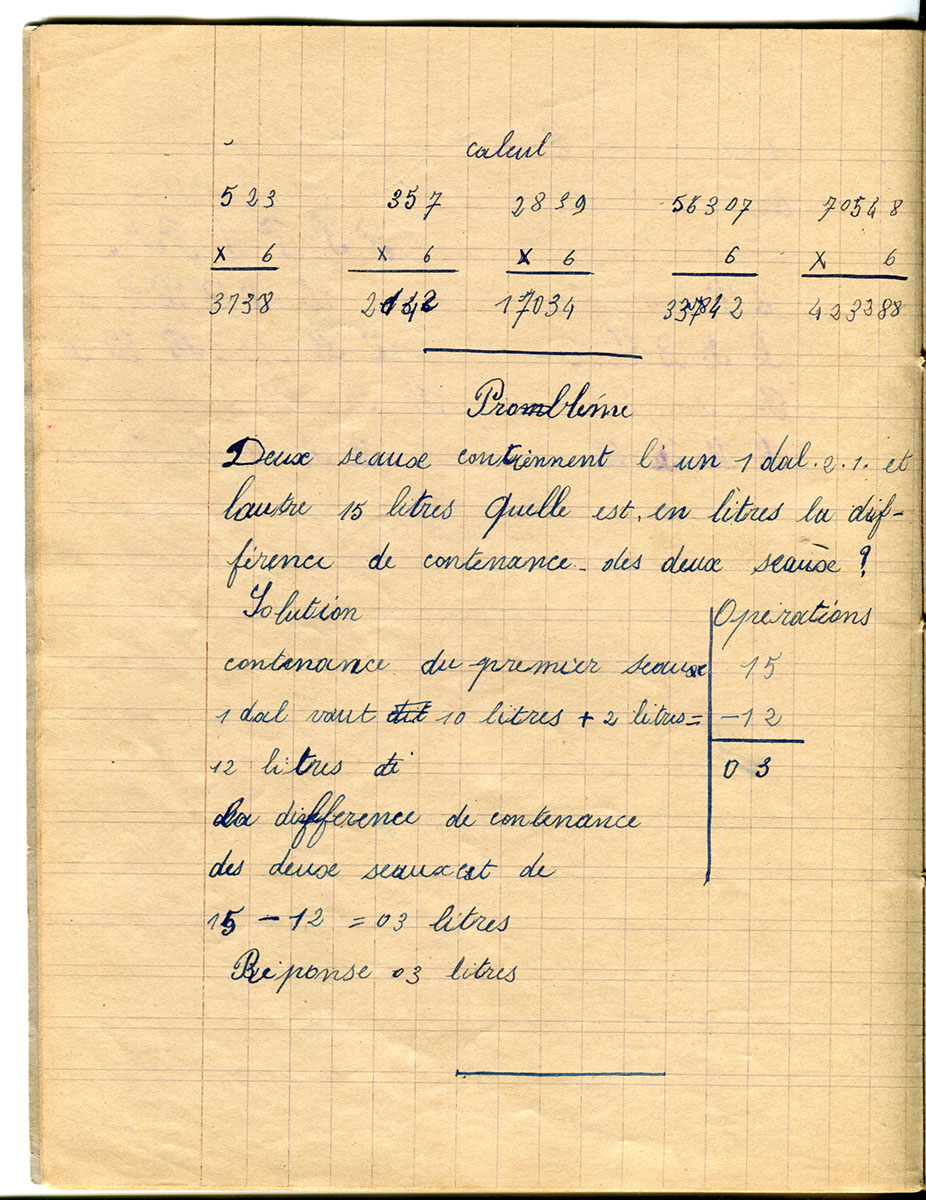 calcul
523 357 2839 56307 70548
x 6 x 6 x 6 6 x 6
3138 2142 17034 337842 423388
Problème
Deux seaux contiennent l'un 1 dal. 2. l. et
lautre 15 litres Quelle est, en litres la dif-
férence de contenance des deux seaux ?
Solution Opérations
contenance du premier seaux 15
1 dal vaut 10 litres + 2 litres= -12
12 litres di 03
La difference de contenance
des deux seaux est de
15 - 12 = 03 litres
Réponse 03 litres